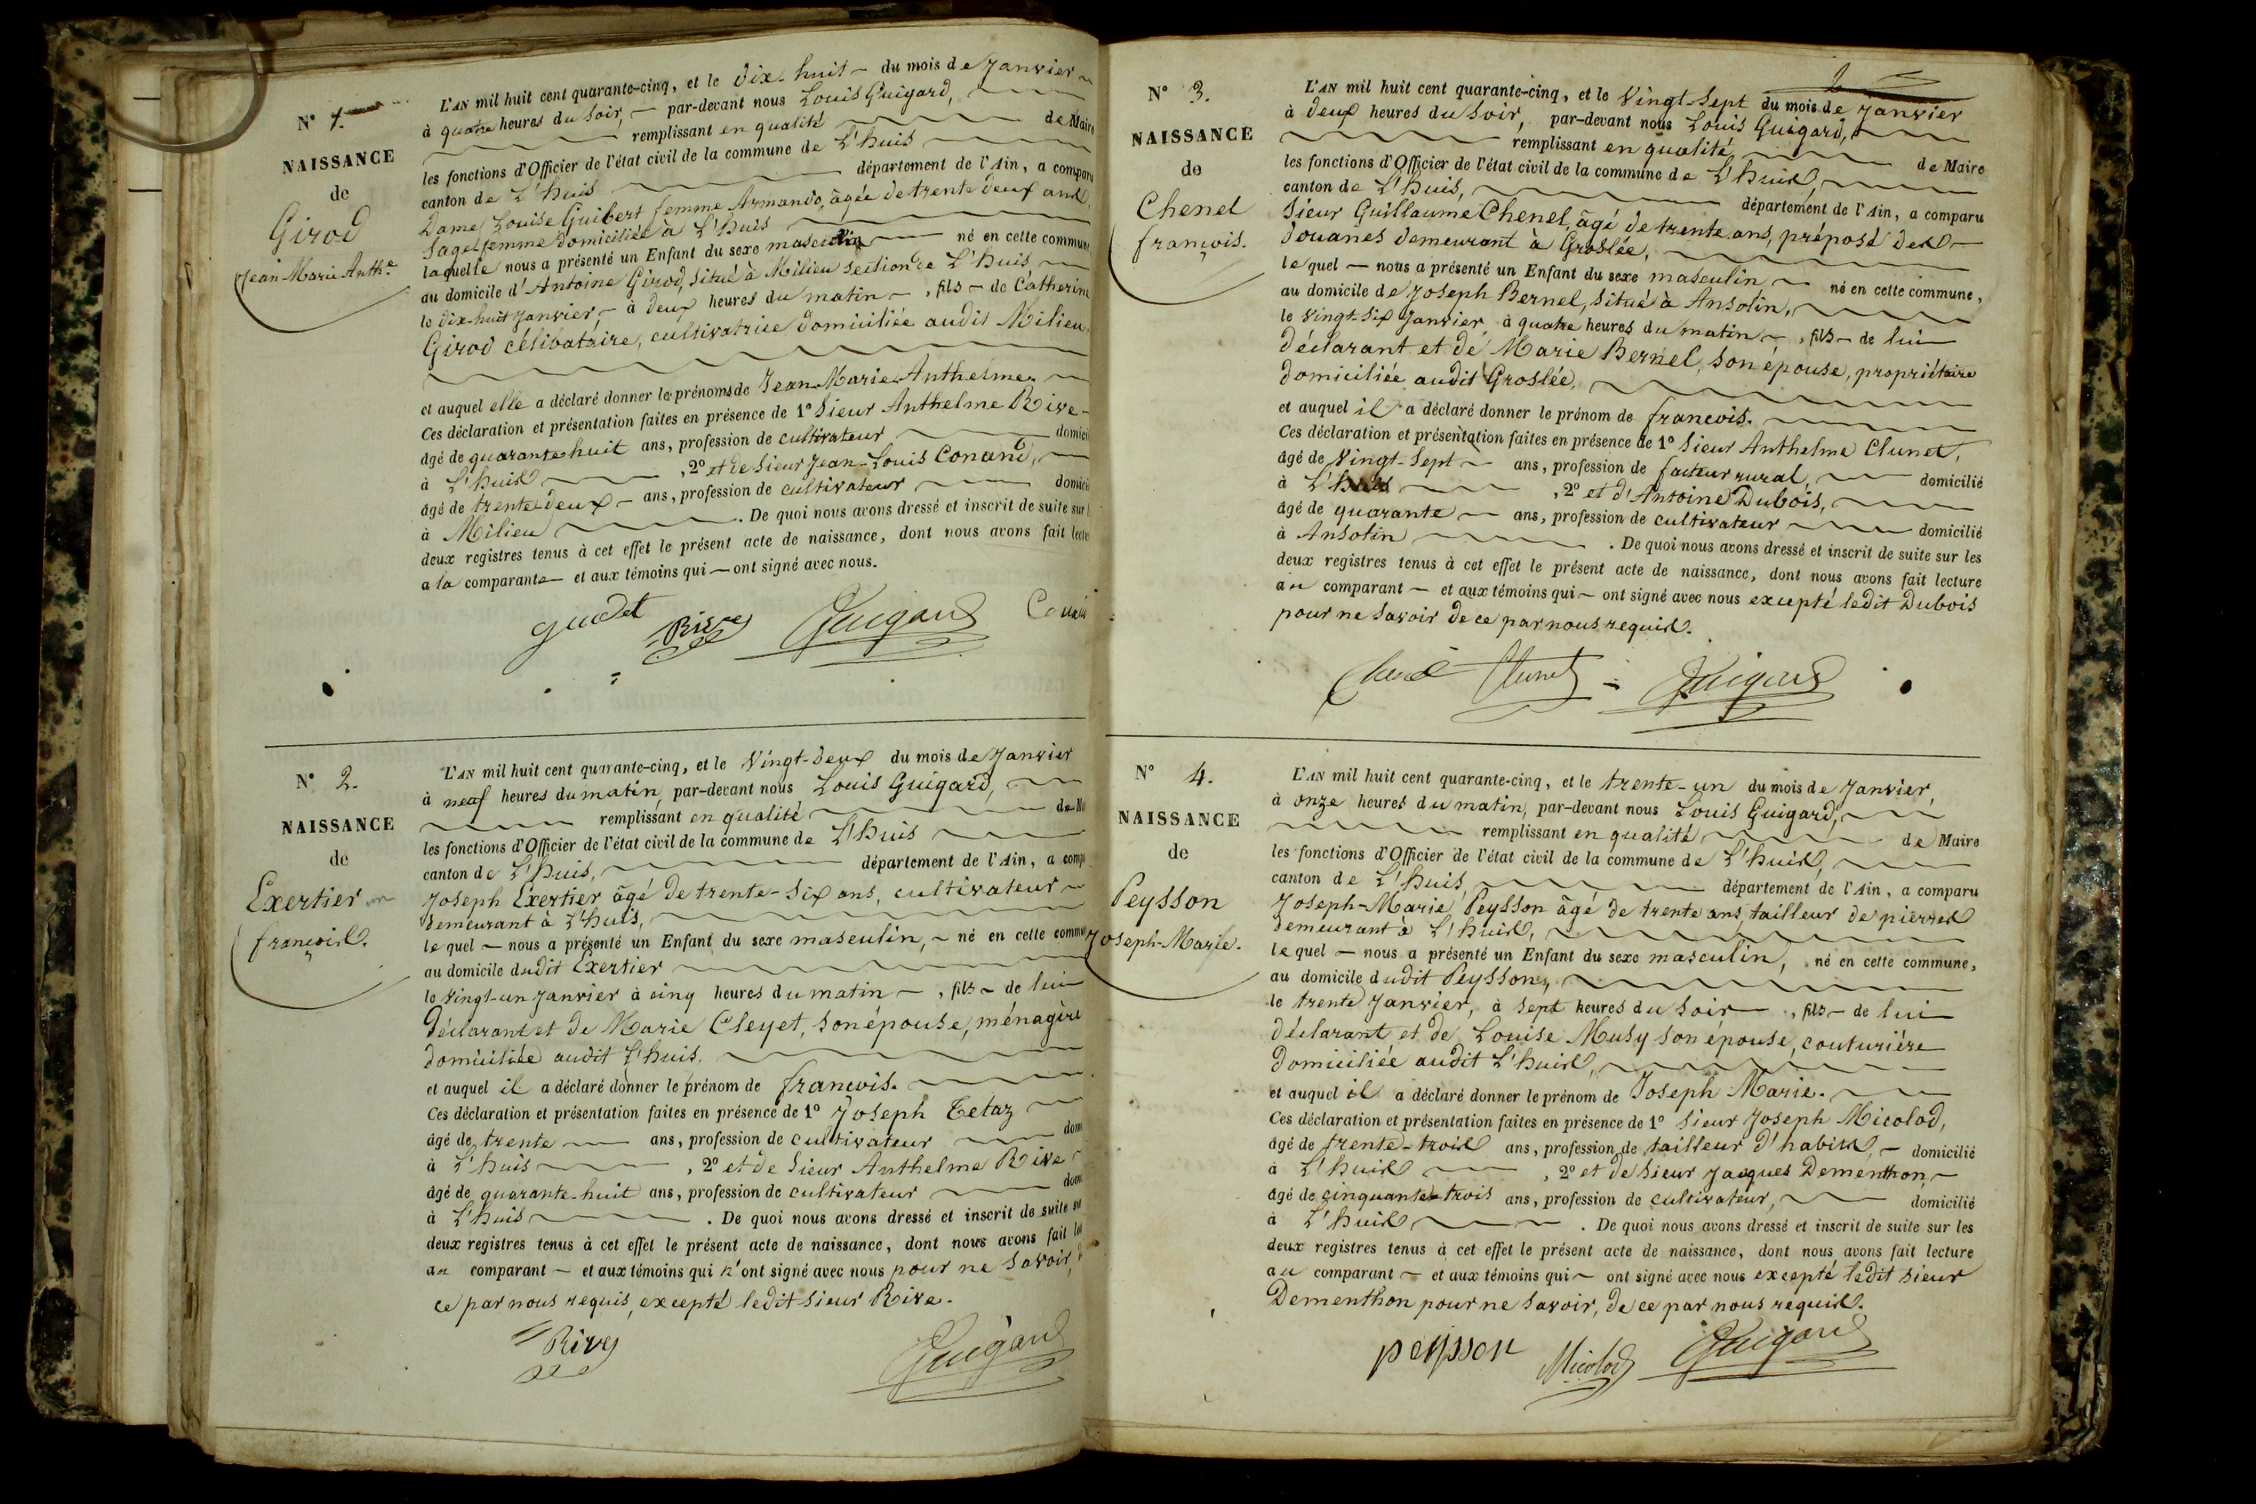 N° 1.
NAISSANCE
de
Girod
Jean Marie Anthe.
L'AN mil huit cent quarante-cinq, et le dix-huit du mois de Janvier
à quatre heures du soir, par-devant nous Louis Guigard,
remplissant en qualité de Maire
les fonctions d'Officier de l'état civil de la commune de L'huis
canton de L'huis département de l'Ain, a comparu
Dame Louise Guibert femme Armand, âgée de trente deux ans,
sage femme domiciliée à L'huis
laquelle nous a présenté un Enfant du sexe masculin né en cette commune
au domicile d'Antoine Girod, situé à Milieu section de L'huis
le dix-huit Janvier à deux heures du matin, fils de Catherine
Girod célibataire, cultivatrice domiciliée audit Milieu.
et auquel elle a déclaré donner le prénoms de Jean Marie Anthelme.
Ces déclaration et présentation faites en présence de 1° Sieur Anthelme Rive
âgé de quarante huit ans, profession de cultivateur domici
à L'huis, 2° et de sieur Jean-Louis Conand,
âgé de trente deux ans, profession de cultivateur domici
à Milieu. De quoi nous avons dressé et inscrit de suite sur l
deux registres tenus à cet effet le présent acte de naissance, dont nous avons fait lectu
a la comparante et aux témoins qui ont signé avec nous.
Rive Guigard
N° 2.
NAISSANCE
de
Exertier
françois.
L'AN mil huit cent quarante-cinq, et le Vingt-deux du mois de Janvier
à neuf heures du matin, par-devant nous Louis Guigard,
remplissant en qualité de M
les fonctions d'Officier de l'état civil de la commune de L'huis
canton de L'huis, département de l'Ain, a comp
Joseph Exertier âgé de trente-six ans, cultivateur
demeurant à L'huis,
lequel nous a présenté un Enfant du sexe masculin, né en cette commu
au domicile dudit Exertier
le vingt-un Janvier à cinq heures du matin, fils de lui
déclarant et de Marie Cleyet, son épouse, ménagère
domiciliée audit L'huis.
et auquel il a déclaré donner le prénom de françois.
Ces déclaration et présentation faites en présence de 1° Joseph Tetaz
âgé de trente ans, profession de cultivateur dom
à L'huis, 2° et de Sieur Anthelme Rive
âgé de quarante-huit ans, profession de cultivateur dom
à L'huis. De quoi nous avons dressé et inscrit de suite su
deux registres tenus à cet effet le présent acte de naissance, dont nous avons fait le
au comparant et aux témoins qui n'ont signé avec nous pour ne savoir,
ce par nous requis, excepté ledit sieur Rive.
Rive Guigard
2
N° 3.
NAISSANCE
de
Chenel
françois.
L'AN mil huit cent quarante-cinq, et le Vingt-Sept du mois de Janvier
à deux heures du soir, par-devant nous Louis Guigard,
remplissant en qualité de Maire
les fonctions d'Officier de l'état civil de la commune de L'huis,
canton de L'huis, département de l'Ain, a comparu
Sieur Guillaume Chenel, âgé de trente ans, préposé des
douanes demeurant à Groslée,
lequel nous a présenté un Enfant du sexe masculin né en cette commune,
au domicile de Joseph Bernel, situé à Ansolin,
le vingt-six Janvier, à quatre heures du matin, fils de lui
déclarant et de Marie Bernel, son épouse, propriétaire
domiciliée audit Groslée,
et auquel il a déclaré donner le prénom de françois.
Ces déclaration et présentation faites en présence de 1° Sieur Anthelme Clunet,
âgé de vingt-sept ans, profession de facteur rural, domicilié
à L'huis, 2° et d'Antoine Dubois,
âgé de quarante ans, profession de cultivateur domicilié
à Ansolin. De quoi nous avons dressé et inscrit de suite sur les
deux registres tenus à cet effet le présent acte de naissance, dont nous avons fait lecture
au comparant et aux témoins qui ont signé avec nous excepté ledit Dubois
pour ne savoir de ce par nous requis.
Clunet Guigard
N° 4.
NAISSANCE
de
Peysson
Joseph-Marie.
L'AN mil huit cent quarante-cinq, et le trente-un du mois de Janvier,
à onze heures du matin, par-devant nous Louis Guigard,
remplissant en qualité de Maire
les fonctions d'Officier de l'état civil de la commune de L'huis,
canton de L'huis, département de l'Ain, a comparu
Joseph-Marie Peysson âgé de trente ans, tailleur de pierres
demeurant à L'huis,
lequel nous a présenté un Enfant du sexe masculin, né en cette commune,
au domicile dudit Peysson,
le trente Janvier, à sept heures du soir, fils de lui
déclarant et de Louise Musy son épouse, couturière
domiciliée audit L'huis,
et auquel il a déclaré donner le prénom de Joseph Marie.
Ces déclaration et présentation faites en présence de 1° Sieur Joseph Micolod,
âgé de trente-trois ans, profession de tailleur d'habits, domicilié
à L'huis, 2° et de Sieur Jacques Dementhon,
âgé de cinquante-trois ans, profession de cultivateur, domicilié
à L'huis. De quoi nous avons dressé et inscrit de suite sur les
deux registres tenus à cet effet le présent acte de naissance, dont nous avons fait lecture
au comparant et aux témoins qui ont signé avec nous excepté ledit sieur
Dementhon pour ne savoir, de ce par nous requis.
peysson Micolod Guigard